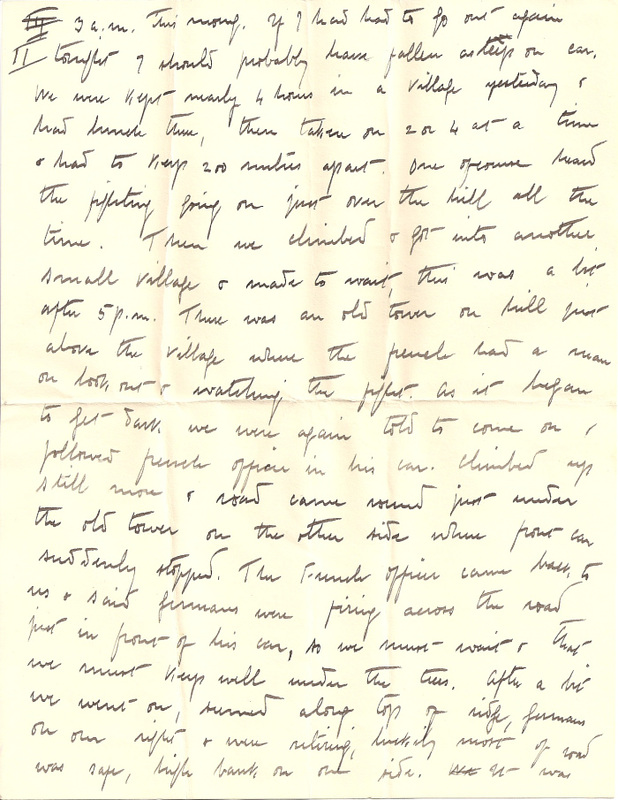 III 3 a.m. this morng. If I had had to go out again
II tonight I should probably have fallen asleep on car.
We were kept nearly 4 hours in a village yesterday &
had lunch there, then taken on 2 or 4 at a time
& had to keep 200 metres apart. One of course heard
the fighting going on just over the hill all the
time. Then we climbed & got into another
small village & made to wait, this was a bit
after 5 p.m. There was an old tower on hill just
above the village where the french had a man
on look out & watching the fight. As it began
to get dark we were again told to come on &
followed french officer in his car. Climbed up
still more & road came round just under
the old tower on the other side where front car
suddenly stopped. The French officer came back to
us & said germans were firing across the road
just in front of his car, so we must wait & that
we must keep well under the trees. After a bit
we went on, seemed along top of ridge, germans
on our right & were retiring, luckily most of road
was safe, high bank on one side. It was